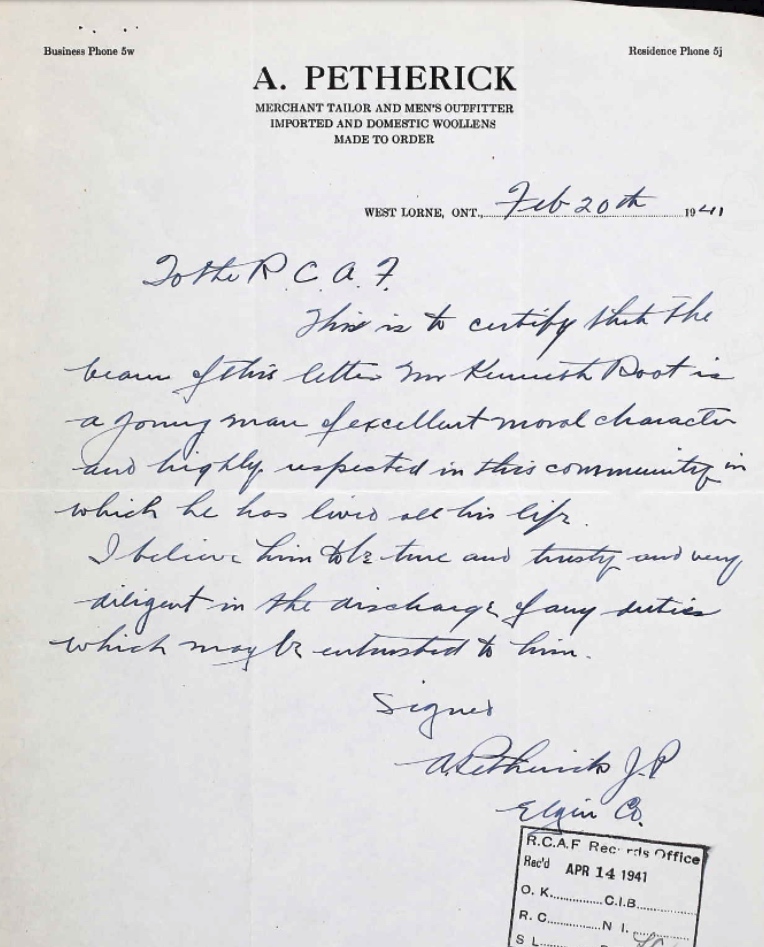 Business Phone 5w
Residence Phone 5j
A. PETHERICK
MERCHANT TAILOR AND MEN'S OUTFITTER
IMPORTED AND DOMESTIC WOOLLENS
MADE TO ORDER
WEST LORNE, ONT., Feb 20th 1941
To the R. C. A. F.
This is to certify that the
bearer of this letter Mr Kenneth Root is
a young man of excellent moral character
and highly respected in this community in
which he has lived all his life.
I believe him to be true and trusty and very
diligent in the discharge of any duties
which may be entrusted to him.
Signed
A. Petherick J.P
Elgin Co.
R.C.A.F Records Office
Rec'd APR 14 1941
O. K. C.I.B.
R. C. N I.
S L.